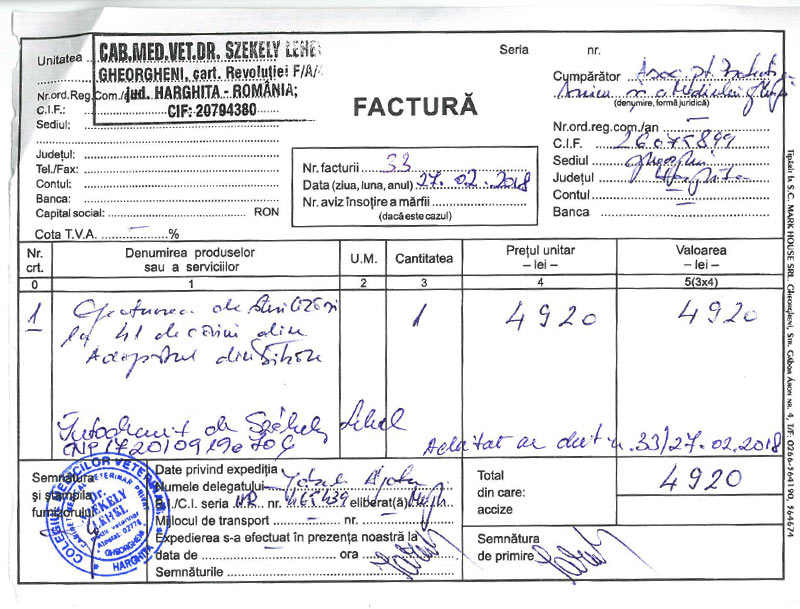 Unitatea
CAB.MED.VET.DR. SZEKELY LEHEL
GHEORGHENI, cart. Revoluţiei F/A/
jud. HARGHITA - ROMÂNIA;
CIF: 20794380
Nr.ord.Reg.Com./an
C.I.F.:
Sediul:
Judeţul:
Tel./Fax:
Contul:
Banca:
Capital social: RON
Cota T.V.A. - %
FACTURĂ
Nr. facturii 33
Data (ziua, luna, anul) 27.02.2018
Nr. aviz însoţire a mărfii
(dacă este cazul)
Seria nr.
Cumpărător Asoc. pt.
(denumire, formă juridică)
Nr.ord.reg.com./an -
C.I.F. 26075899
Sediul
Judeţul Harghita
Contul -
Banca
Nr. crt. Denumirea produselor sau a serviciilor U.M. Cantitatea Preţul unitar – lei – Valoarea – lei –
0 1 2 3 4 5(3x4)
1 Efectuarea de sterilizări 1 4920 4920
la 41 de câini din
Adăpostul din
Întocmit de Székely Lehel
CNP
Achitat cu chit nr. 33/27.02.2018
Semnătura
şi ştampila
furnizorului
COLEGIUL MEDICILOR VETERINARI
Dr.
SZEKELY
LEHEL
medic veterinar
GHEORGHENI
HARGHITA
Date privind expediţia
Numele delegatului
B.I./C.I. seria HR nr. 465439 eliberat(ă)
Mijlocul de transport - nr. -
Expedierea s-a efectuat în prezenţa noastră la
data de ora
Semnăturile
Total 4920
din care:
accize
Semnătura
de primire
Tipărit la S.C. MARK HOUSE SRL, Gheorgheni, Str. Gábor Áron nr. 4, T/F: 0266-364190, 364674